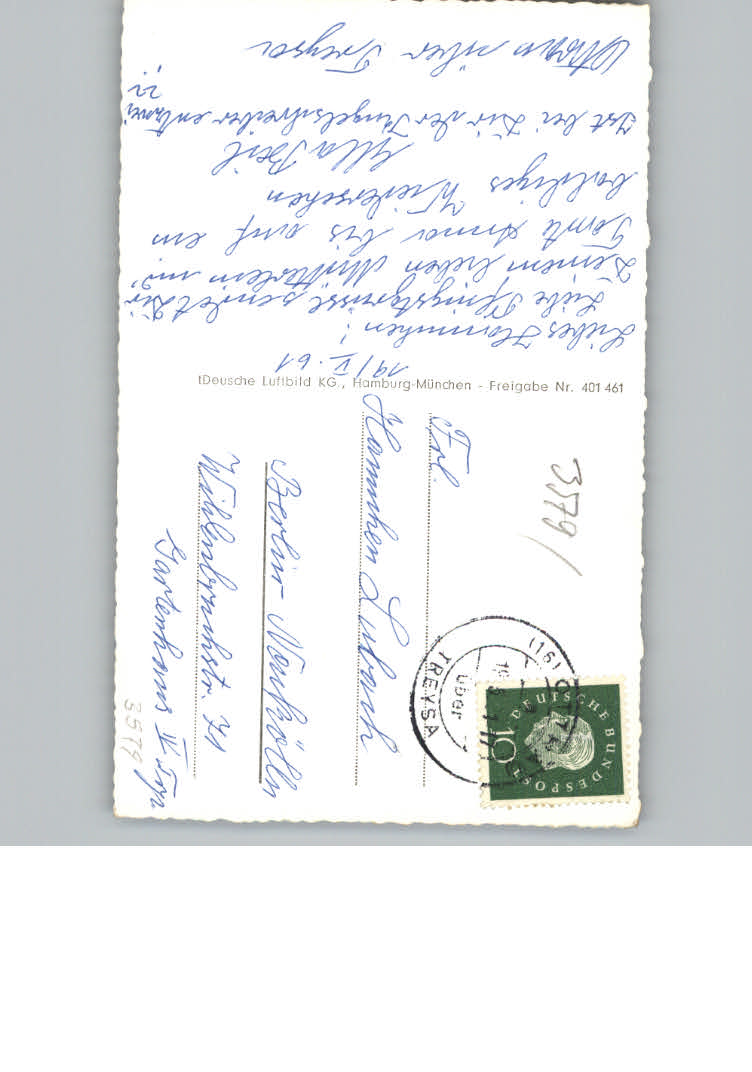 19/V. 61
Liebes Hannchen!
Liebe Pfingstgrüsse sendet Dir
Deinem lieben Mütterlein u.
Tante Anna bis auf ein
baldiges Wiedersehen
Ulla Beil
Ist bei Dir der Kugelschreiber entzwei
??
Ottrau über Treysa
tDeusche Luftbild KG., Hamburg-München - Freigabe Nr. 401 461
Frl.
Hannchen Lubach
Berlin-Neukölln
Wildenbruchstr. 71
Gartenhaus IV Trp
3579/
3579
(16)
über
TREYSA
DEUTSCHE BUNDESPOST
10